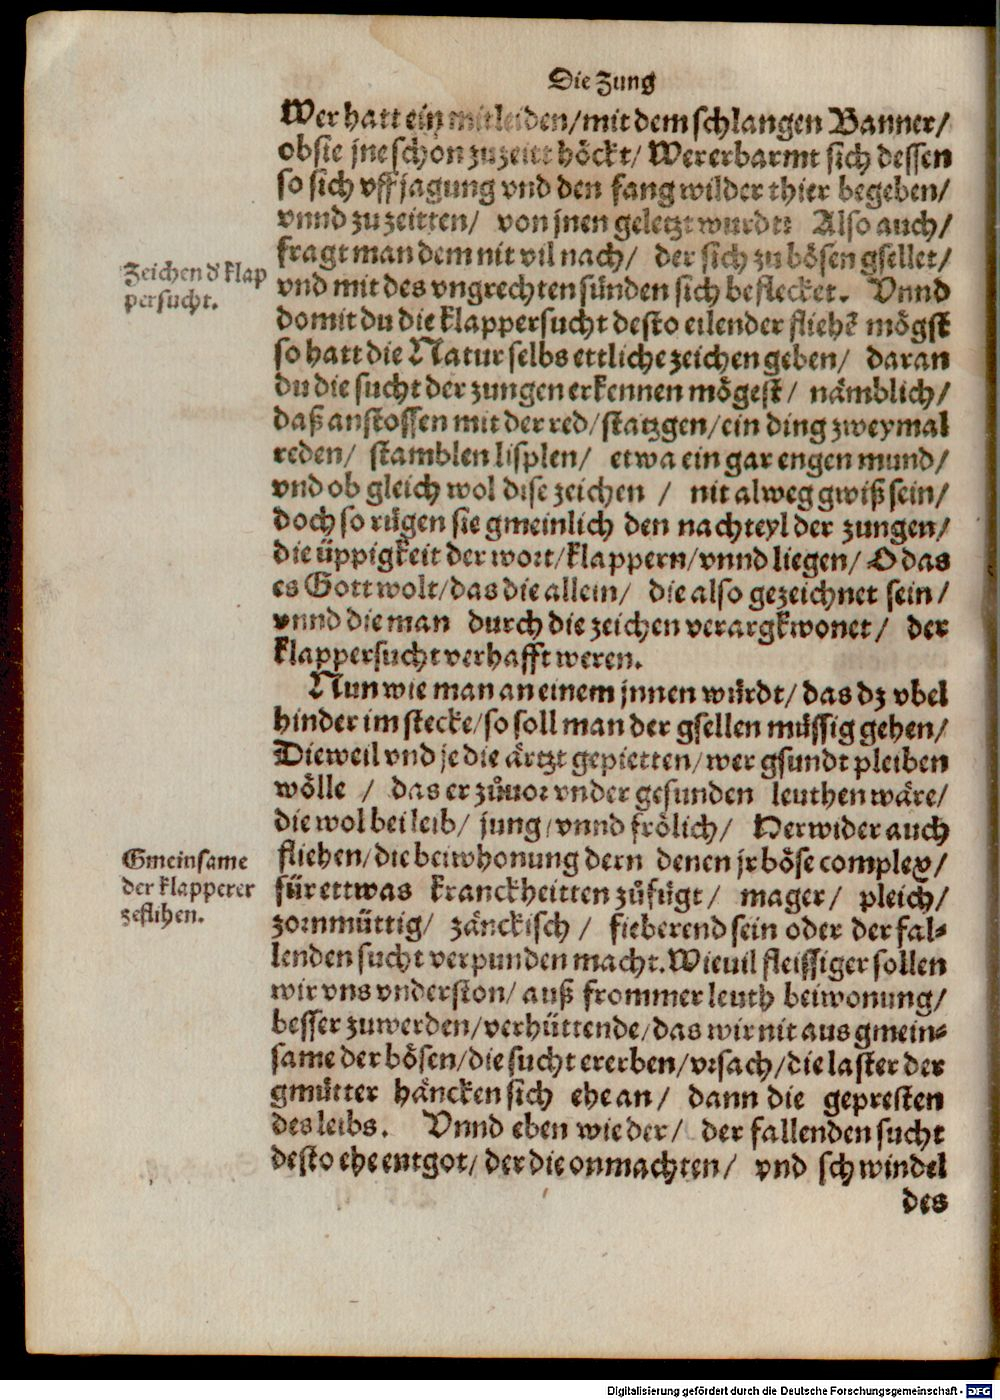 Die Zung
Wer hatt ein mitleiden/ mit dem schlangen Banner/
ob sie jne schon zu zeitt höckt/ Wer erbarmt sich dessen
so sich vff jagung vnd den fang wilder thier begeben/
vnnd zu zeitten/ von jnen geletzt wurdt? Also auch/
fragt man dem nit vil nach/ der sich zu bösen gsellet/
Zeichen d' klap
persucht.
vnd mit des vngrechten sünden sich beflecket. Vnnd
domit du die klappersucht desto eilender flieh? mögst
so hatt die Natur selbs ettliche zeichen geben/ daran
du die sucht der zungen erkennen mögest/ nämblich/
daß anstossen mit der red/ statzgen/ ein ding zweymal
reden/ stamblen lisplen/ etwa ein gar engen mund/
vnd ob gleich wol dise zeichen / nit alweg gwiß sein/
doch so rügen sie gmeinlich den nachteyl der zungen/
die üppigkeit der wort/ klappern/ vnnd liegen/ O das
es Gott wolt/ das die allein/ die also gezeichnet sein/
vnnd die man durch die zeichen verargkwonet/ der
klappersucht verhafft weren.
Nun wie man an einem jnnen würdt/ das dz vbel
hinder im stecke/ so soll man der gsellen müssig gehen/
Dieweil vnd je die ärtzt gepietten/ wer gsundt pleiben
wölle / das er zůuor vnder gesunden leuthen wäre/
die wol bei leib/ jung/ vnnd frölich/ Herwider auch
Gmeinsame
der klapperer
zeflihen.
fliehen/ die beiwhonung dern denen jr böse complex/
für ettwas kranckheitten zůfügt/ mager/ pleich/
zornmüttig/ zänckisch / fieberend sein oder der fal⸗
lenden sucht verpunden macht. Wieuil fleissiger sollen
wir vns vnderston/ auß frommer leuth beiwonung/
besser zuwerden/ verhüttende/ das wir nit aus gmein⸗
same der bösen/ die sucht ererben/ vrsach/ die laster der
gmütter häncken sich ehe an/ dann die gepresten
des leibs. Vnnd eben wie der/ der fallenden sucht
desto ehe entgot/ der die onmachten/ vnd schwindel
des
Digitalisierung gefördert durch die Deutsche Forschungsgemeinschaft - DFG